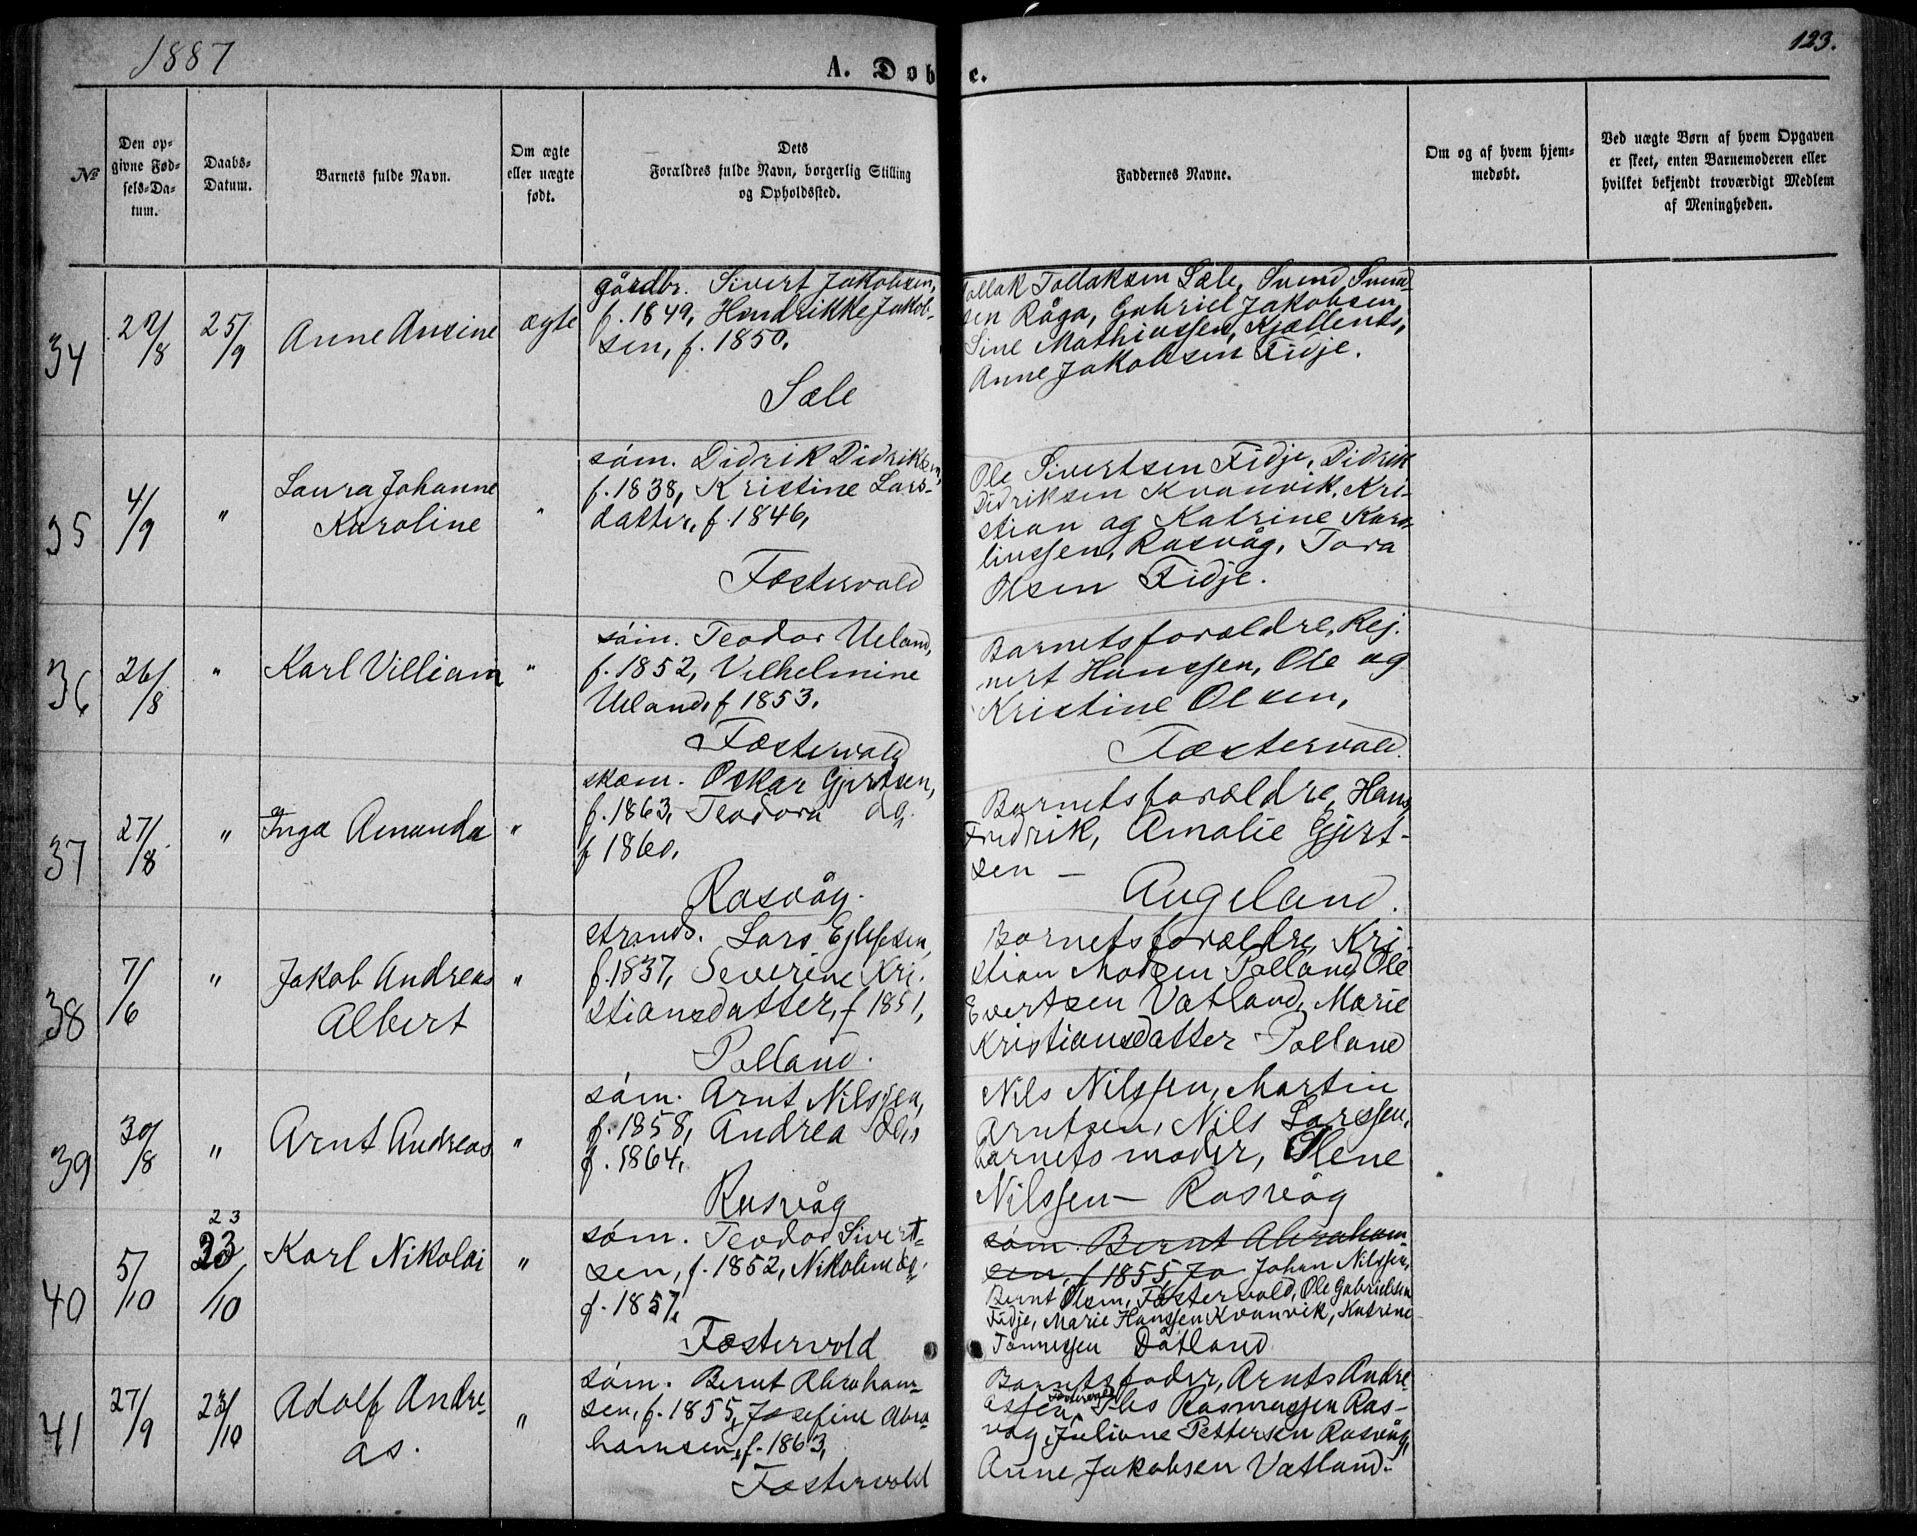 1887
A. Døbte.
123.
№
Den opgivne Fødsels-Datum.
Daabs-Datum.
Barnets fulde Navn.
Om ægte eller uægte født.
Dets Forældres fulde Navn, borgerlig Stilling og Opholdssted.
Faddernes Navne.
Om og af hvem hjemmedøbt.
Ved uægte Børn af hvem Opgaven er skeet, enten Barnemoderen eller hvilket bekjendt troværdigt Medlem af Meningheden.
34
27/8
25/9
Anne Ansine
ægte
gårdbr. Sivert Jakobsen,
f. 1849, Hendrikke Jakob-
sen, f. 1850.
Sæle
Tollak Tollaksen Sæle, Svend Svend-
sen Råga, Gabriel Jakobsen,
Sine Mathiassen, Kjællents,
Anne Jakobsen Fidje.
35
4/9
"
Laura Johanne
Karoline
"
søm. Didrik Didriksen,
f. 1838, Kristine Lars-
datter, f. 1846,
Fæstervold
Ole Sivertsen Fidje, Didrik
Didriksen Kvanvik, Kri-
stian og Katrine Karo-
linssen, Rasvåg, Tora
Olsen Fidje.
36
26/8
"
Karl Villiam
"
søm. Teodor Ueland,
f. 1852, Vilhelmine
Ueland, f 1853.
Fæstervold
Barnets forældre, Rej-
nert Hanssen, Ole og
Kristine Olsen,
Fæstervold.
37
27/8
"
Inga Amanda
"
skom. Oskar Gjertsen,
f. 1863, Teodora do,
f 1860.
Rasvåg.
Barnets forældre, Hans
Fredrik, Amalie Gjert-
sen —
Augeland.
38
7/6
"
Jakob Andreas
Albert
"
strands. Lars Ejlefsen,
f. 1837, Severine Kri-
stiansdatter, f 1851,
Polland.
Barnets forældre, Kri
stian Madsen Polland, Ole
Evertsen Vatland, Marie
Kristiansdatter Polland
39
30/8
"
Arnt Andreas
"
søm. Arnt Nilssen,
f. 1858, Andrea do,
f. 1864,
Rasvåg
Nils Nilssen, Martin
Arntsen, Nils Larssen,
barnets moder, Olene
Nilssen — Rasvåg
40
5/10
23
23/10
Karl Nikolai
"
søm. Teodor Sivert-
sen, f. 1852, Nikoline do,
f. 1857,
Fæstervold
søm. Bernt Abraham-
sen, f 1855, Jo Johan Nilssen,
Bernt Olsen, Fæstervold, Ole Gabrielsen
Fidje, Marie Hanssen Kvanvik, Katrine
Tønnessen Dåtland
41
27/9
23/10
Adolf Andre-
as.
"
søm. Bernt Abraham-
sen, f. 1855, Josefine Abra-
hamsen, f. 1863,
Fæstervold
Barnets fader, Arnts Andre-
assen, Rasmussen Ras-
våg, Juliane Pettersen Rasvåg,
Anne Jakobsen Vatland.